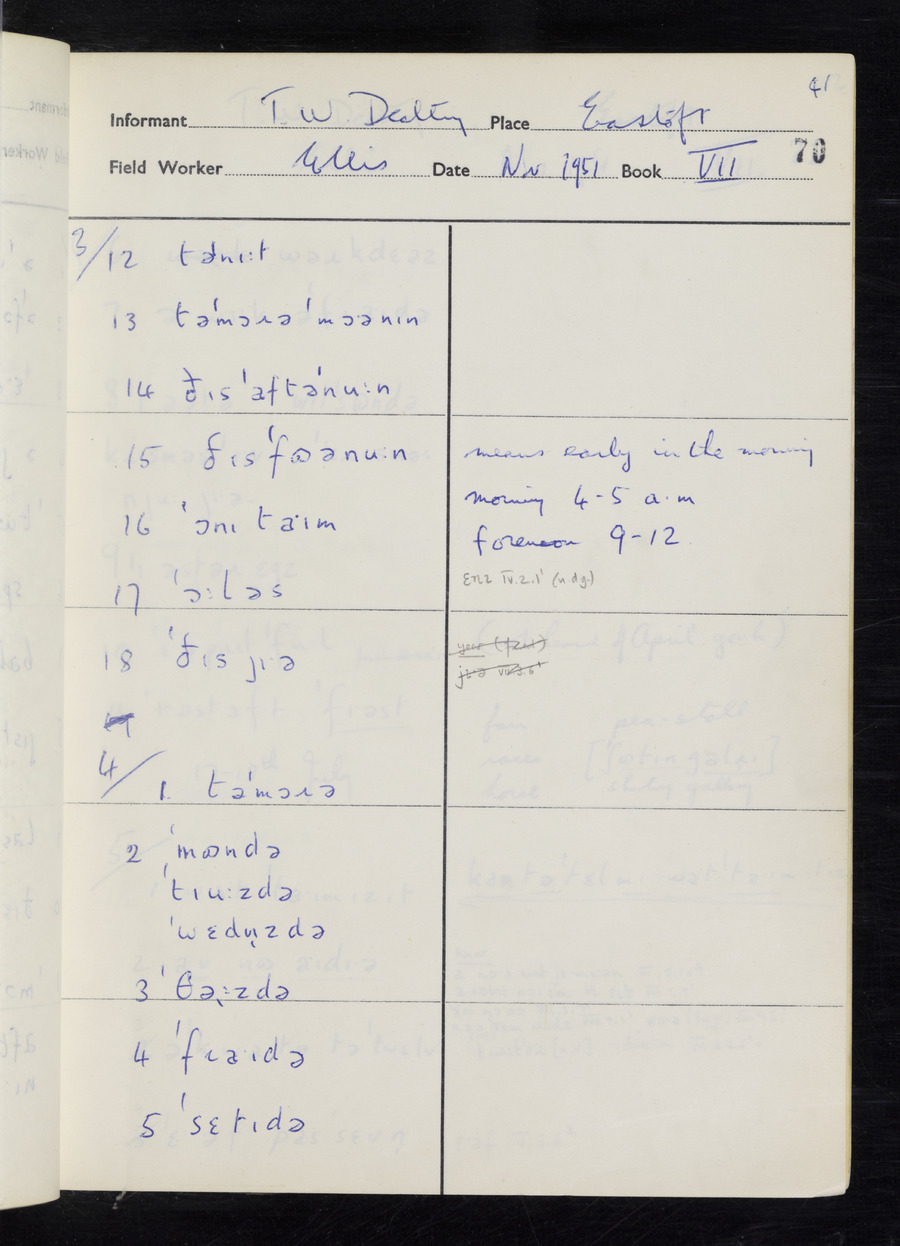 41
Informant T. W. Dealtry Place Eastoft
70
Field Worker Ellis Date Nov 1951 Book VII
3/12 təniːt
13 təˈmɔɹəˈmɔənɪn
14 ðɪsˈaftəˈnuːn
15 ðɪsˈfoənuːn means early in the morning
morning 4-5 a.m
16 ˈɔnɪ taɪm
forenoon 9-12
17 ˈɔːləs
18 ˈðɪs jɪə
year
4/1. təˈmɔɹə
2 ˈmʊndə
ˈtɪuːzdə
ˈwɛdn̩zdə
3 ˈθəːzdə
4 ˈfɹaɪdə
5 ˈsɛtɪdə